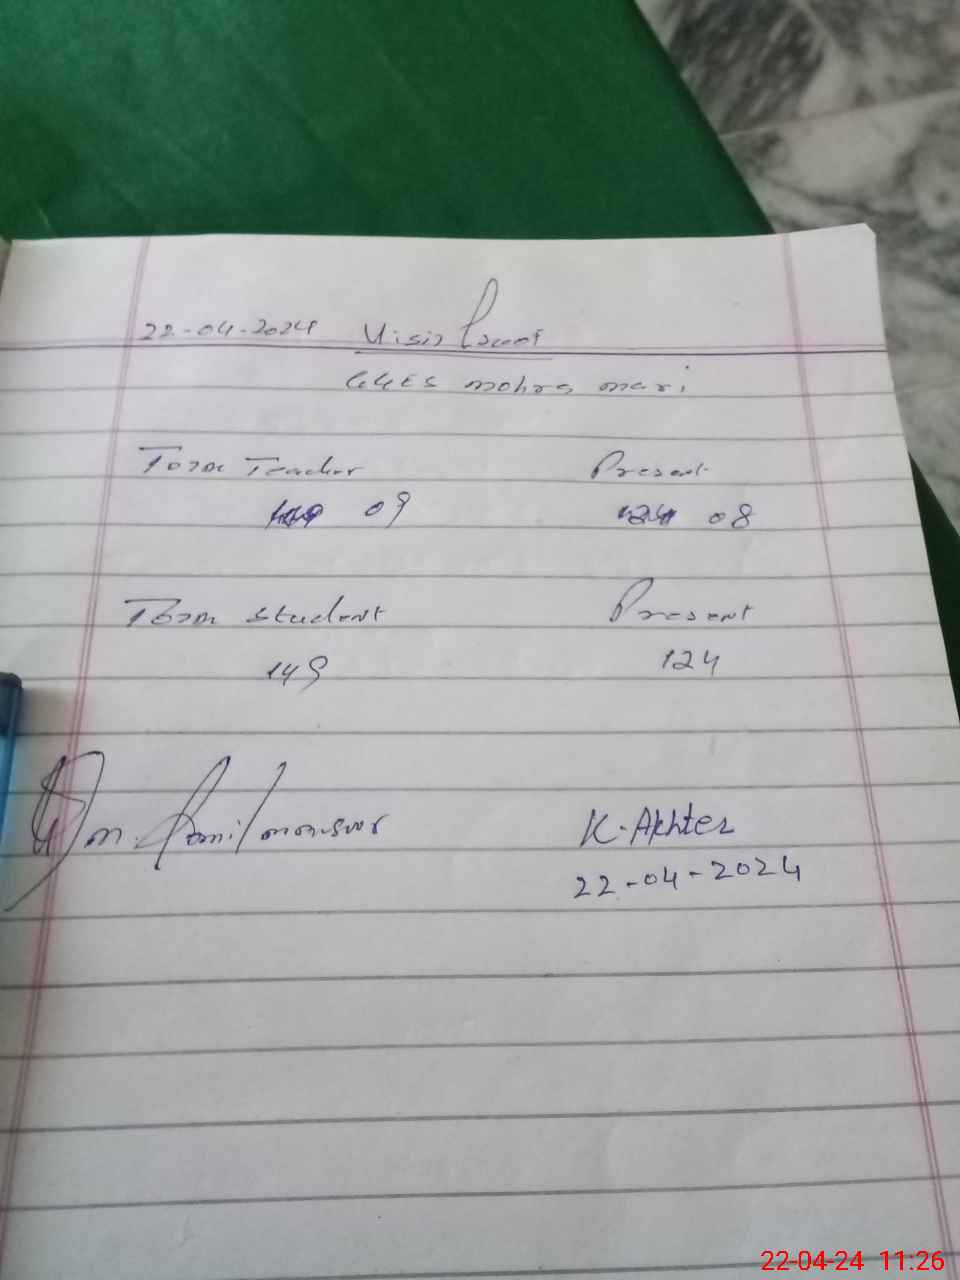 22-04-2024 Visit Proof
GGES mohra mari
Total Teacher Present
09 08
Total Student Present
149 124
K. Akhter
22-04-2024
22-04-24 11:26